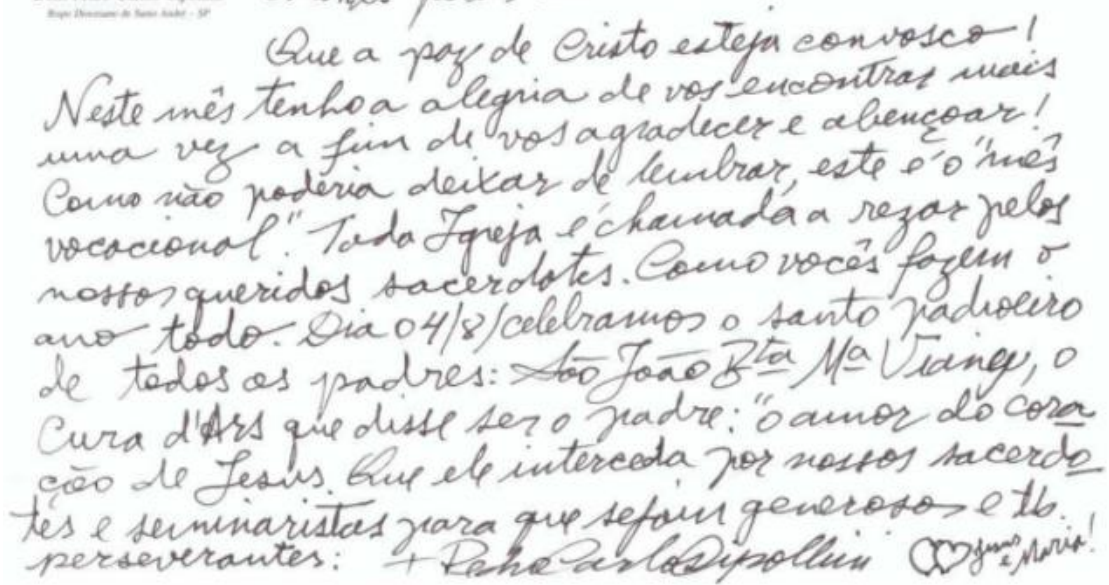 Bispo Diocesano de Santo André - SP
Que a paz de Cristo esteja convosco!
Neste mês tenho a alegria de vos encontrar mais
uma vez a fim de vos agradecer e abençoar!
Como não poderia deixar de lembrar, este é o "mês
vocacional". Toda Igreja é chamada a rezar pelos
nossos queridos sacerdotes. Como vocês fazem o
ano todo. Dia 04/8/celebramos o santo padroeiro
de todos os padres: São João Bta Ma Vianey, o
Cura d'Ars que disse ser o padre: "o amor do cora
ção de Jesus. Que ele interceda por nossos sacerdo
tes e seminaristas para que sejam generosos e tb.
perseverantes: + Pedro Carlos Cipollini Jesus e Maria!